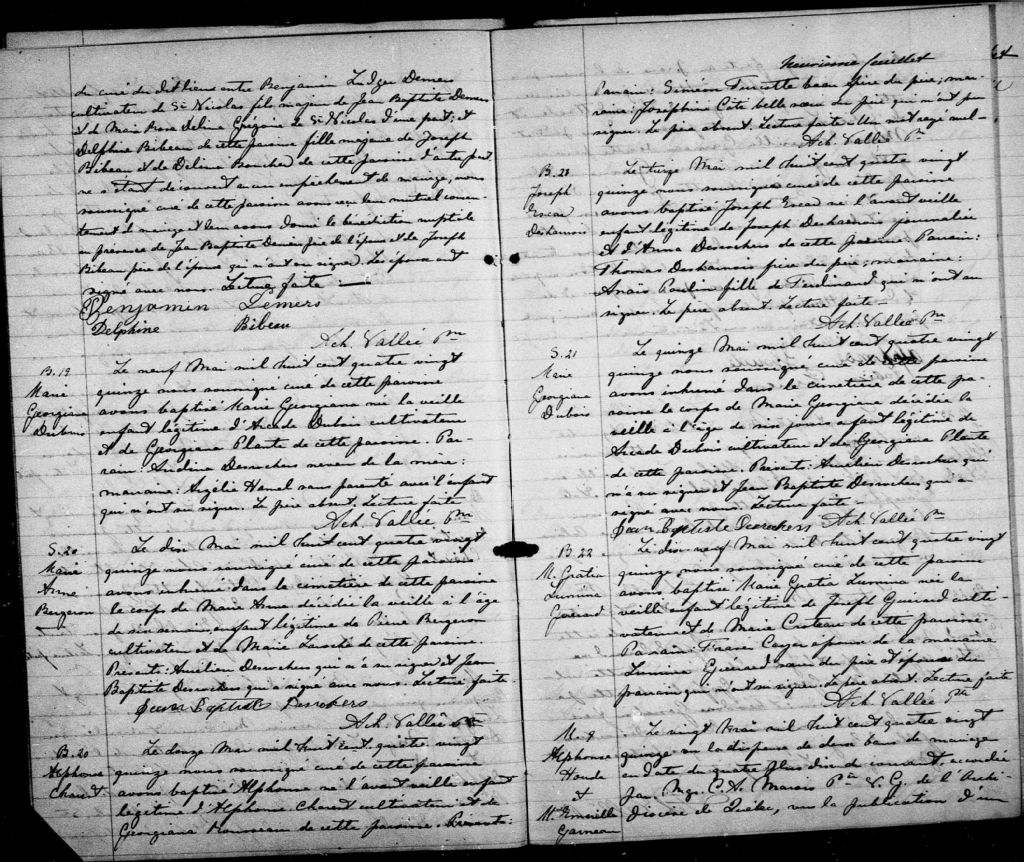 du curé du dit lieu entre Benjamin Ledger Demers
cultivateur de St Nicolas fils majeur de Jean Baptiste Demers
et de Marie Rose Delina Grégoire de St Nicolas d'une part; et
Delphine Bibeau de cette paroisse fille majeure de Joseph
Bibeau et de Delina Boucher de cette paroisse d'autre part
ne a été découvert aucun empêchement de mariage, nous
soussigné curé de cette paroisse avons reçu leur mutuel consen-
tement de mariage et leur avons donné la bénédiction nuptiale
en présence de Jean Baptiste Demers père de l'époux et de Joseph
Bibeau père de l'épouse qui n'ont su signer. Les époux ont
signé avec nous. Lecture faite
Benjamin Demers
Delphine Bibeau
Ach. Vallée Ptre
B. 19
Marie
Georgiana
Dubois
Le neuf Mai mil huit cent quatre vingt
quinze nous soussigné curé de cette paroisse
avons baptisé Marie Georgiana née la veille
enfant légitime d'Arcade Dubois cultivateur
et de Georgiana Plante de cette paroisse. Par-
rain: Desrochers neveu de la mère:
marraine: Azélie Hamel sans parenté avec l'enfant
qui n'ont su signer. Le père absent. Lecture faite
Ach. Vallée Ptre
S. 20
Marie
Anne
Bergeron
Le dix Mai mil huit cent quatre vingt
quinze nous soussigné curé de cette paroisse
avons inhumé dans le cimetière de cette paroisse
le corps de Marie Anne décédée la veille à l'âge
de six semaines enfant légitime de Pierre Bergeron
cultivateur et de Marie Laroche de cette paroisse.
Présents: Aurélien Desrochers qui n'a su signer et Jean
Baptiste Desrochers qui a signé avec nous. Lecture faite
Jean Baptiste Desrochers
Ach. Vallée Ptre
B. 20
Alphonse
Charest
Le douze Mai mil huit cent quatre vingt
quinze nous soussigné curé de cette paroisse
avons baptisé Alphonse né l'avant veille enfant
légitime d'Alphonse Charest cultivateur et de
Georgiana Rousseau de cette paroisse. Présents:
feuillet
64
Parrain: Siméon Turcotte beau frère du père; mar-
raine: Joséphine Coté belle soeur du père qui n'ont pu
signer. Le père absent. Lecture faite. Un mot rayé nul.
Ach. Vallée Ptre
B. 21
Joseph
Deshamois
Le treize Mai mil huit cent quatre vingt
quinze nous soussigné curé de cette paroisse
avons baptisé Joseph né l'avant veille
enfant légitime de Joseph Desharnois journalier
et d'Anna Desrochers de cette paroisse: Parrain:
Thomas Desharnois frère du père; marraine:
Anaïs Poulin fille de Ferdinand qui n'ont su
signer. Le père absent. Lecture faite
Ach. Vallée Ptre
S. 21
Marie
Georgiana
Dubois
Le quinze Mai mil huit cent quatre vingt
quinze nous soussigné curé de cette paroisse
avons inhumé dans le cimetière de cette pa-
roisse le corps de Marie Georgiana décédée la
veille à l'âge de six jours enfant légitime de
Arcade Dubois cultivateur et de Georgiana Plante
de cette paroisse. Présents: Aurélien Desrochers qui
n'a su signer et Jean Baptiste Desrochers qui a
signé avec nous. Lecture faite
Jean Baptiste Desrochers Ach. Vallée Ptre
B. 22
M. Gratia
Lumina
Guérard
Le dix neuf Mai mil huit cent quatre vingt
quinze nous soussigné curé de cette paroisse
avons baptisé Marie Gratia Lumina née la
veille enfant légitime de Joseph Guérard culti-
vateur et de Marie Croteau de cette paroisse.
Parrain: Franc. Cayer époux de la marraine
Lumina Guérard soeur du père et épouse du
parrain qui n'ont su signer. Le père absent. Lecture faite
Ach. Vallée Ptre
M. 8
Alphonse
Houde
et
M.
Garneau
Le vingt Mai mil huit cent quatre vingt
quinze vu la dispense de deux bans de mariage
en date du quatre du courant, accordée
par Mgr. C. A. Marois Ptre V. G. de l'Archi-
diocèse de Québec, vu la publication d'un